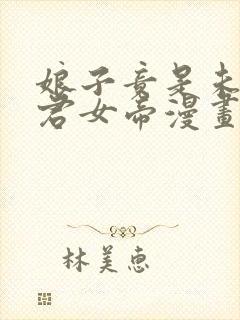 娘子竟是未
君女帝漫畫
林美惠